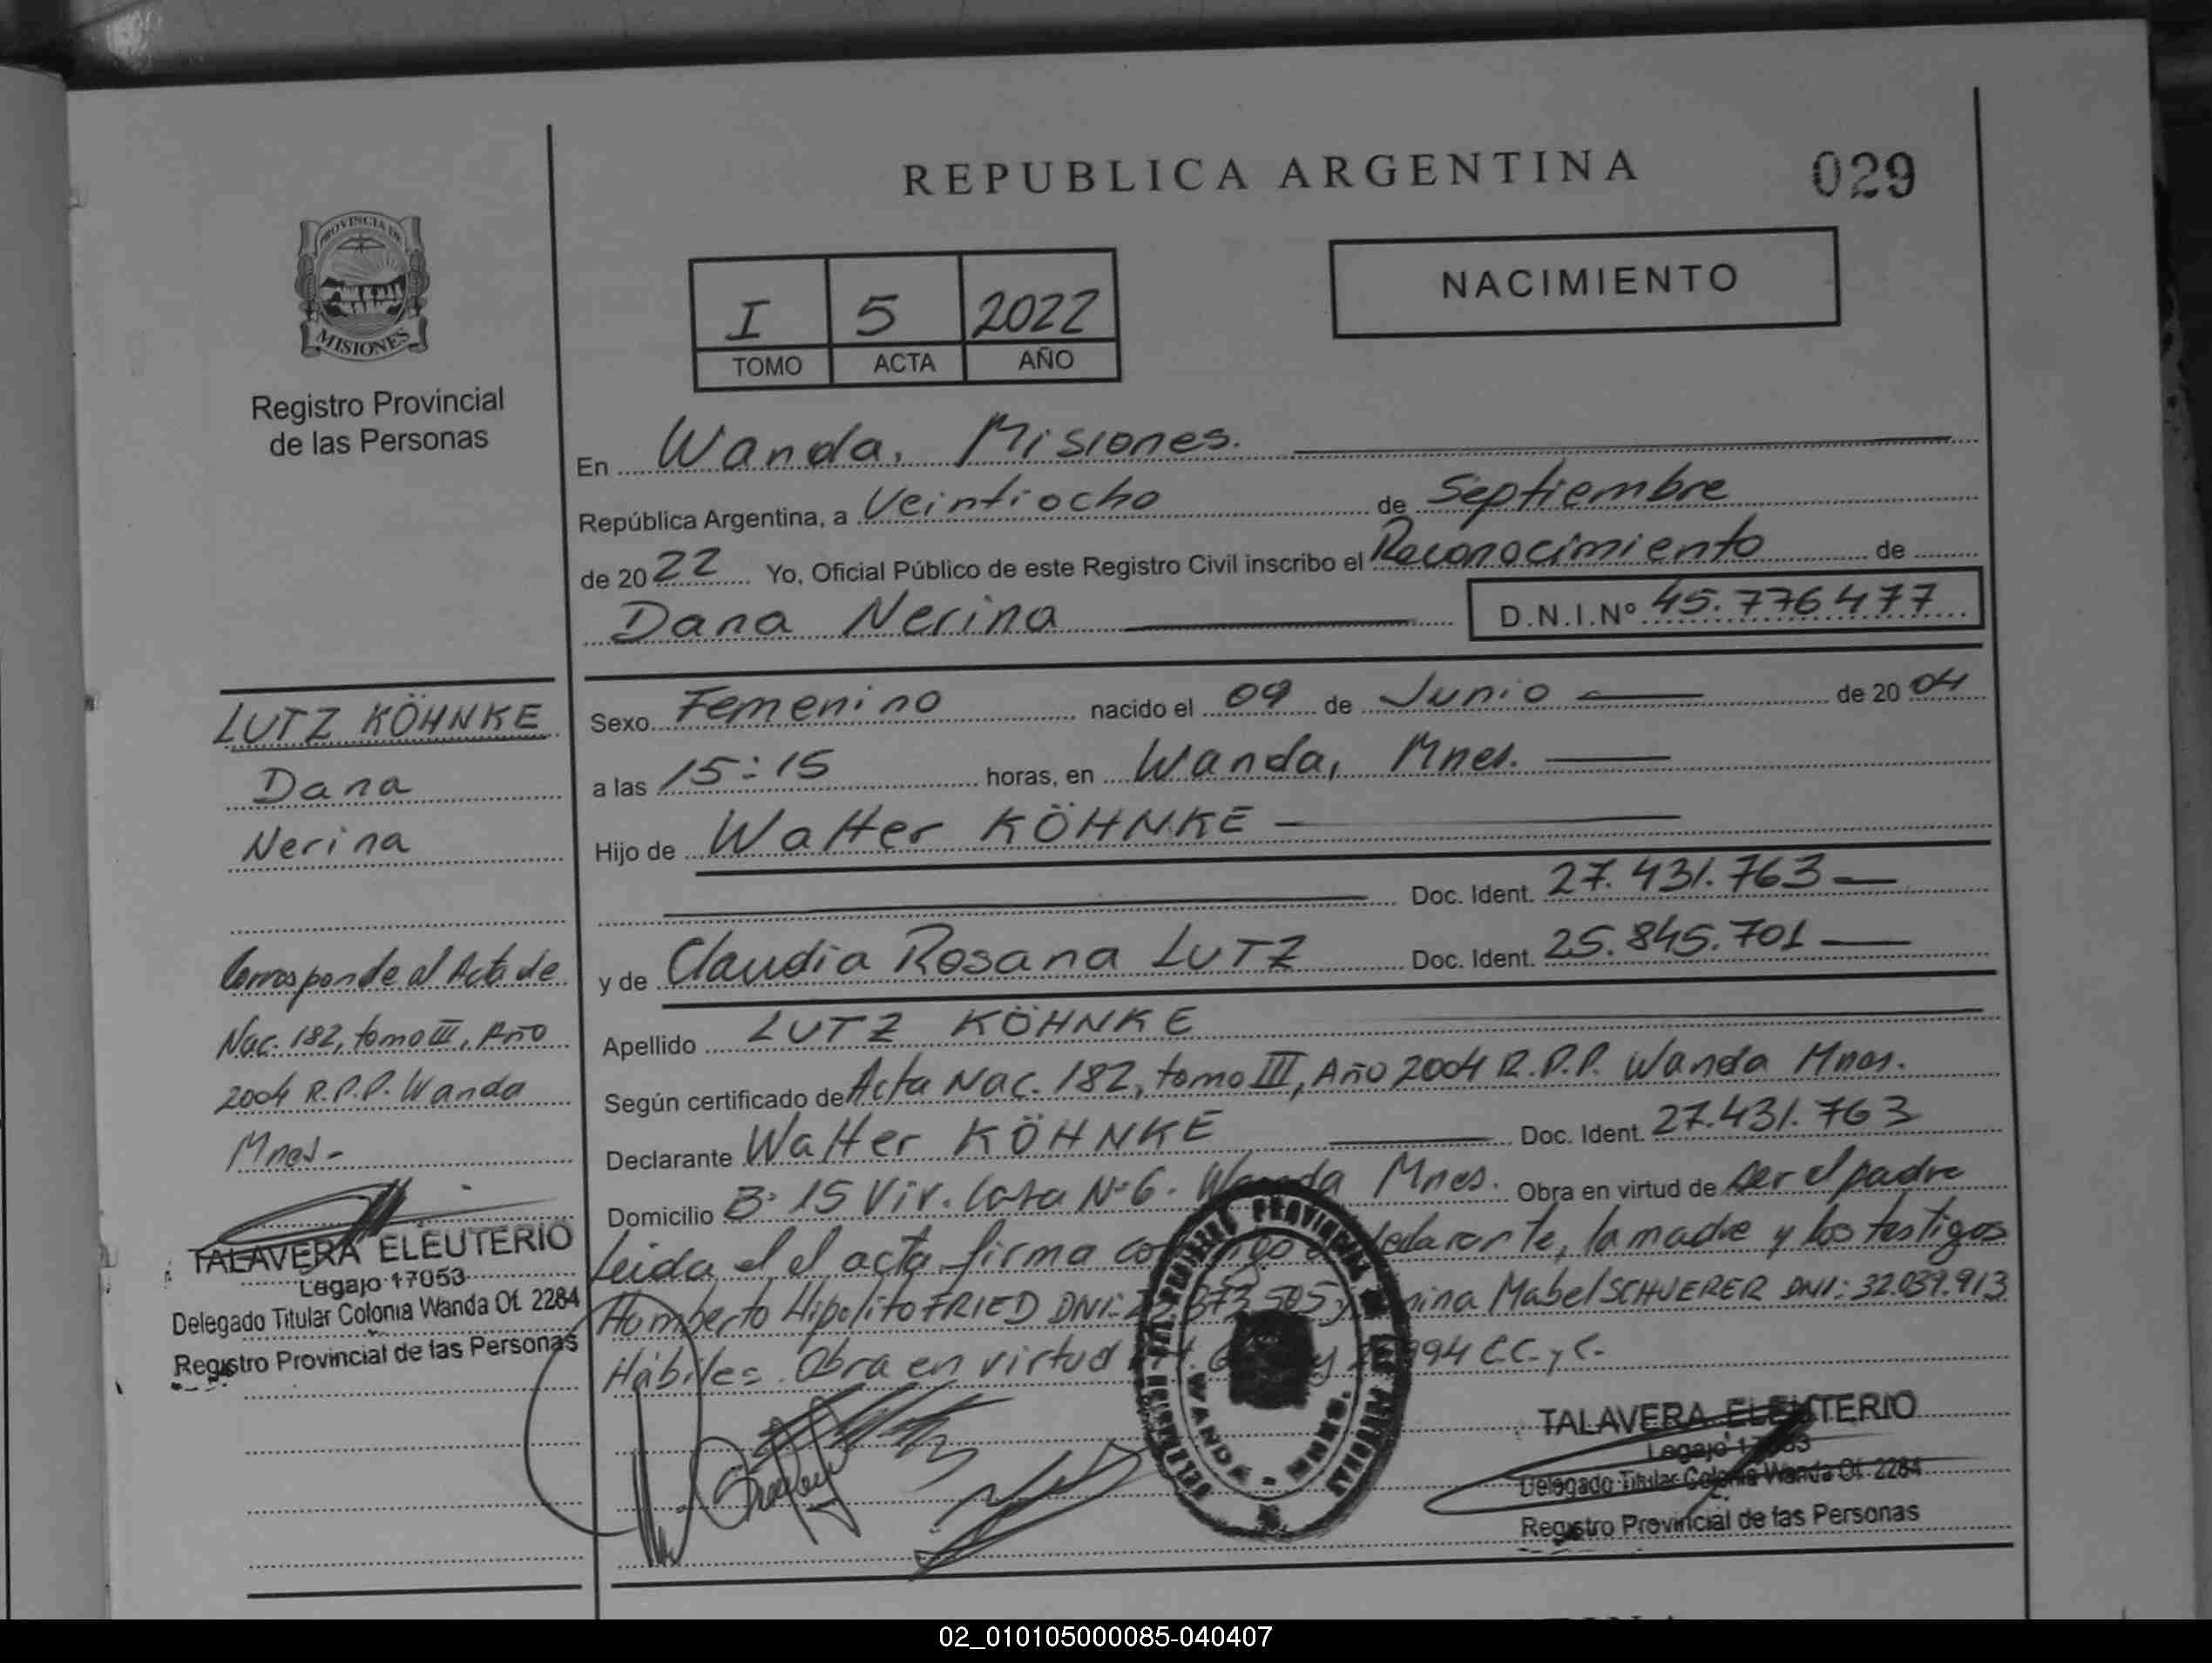 REPUBLICA ARGENTINA
029
PROVINCIA DE
MISIONES
Registro Provincial
de las Personas
I 5 2022
TOMO ACTA AÑO
NACIMIENTO
En Wanda, Misiones.
República Argentina, a Veintiocho de Septiembre
de 2022 Yo, Oficial Público de este Registro Civil inscribo el Reconocimiento de
Dana Nerina D.N.I.Nº 45.776477
LUTZ KÖHNKE
Dana
Nerina
Corresponde al Acta de
Nac. 182, tomo III, Año
2004 R.P.P. Wanda
Mnes-
TALAVERA ELEUTERIO
Legajo 17053
Delegado Titular Colonia Wanda Of. 2284
Registro Provincial de las Personas
Sexo Femenino nacido el 09 de Junio de 2004
a las 15:15 horas, en Wanda, Mnes.
Hijo de Walter KÖHNKE
Doc. Ident. 27.431.763
y de Claudia Rosana LUTZ Doc. Ident. 25.845.701
Apellido LUTZ KÖHNKE
Según certificado de Acta Nac. 182, tomo III, Año 2004 R.P.P. Wanda Mnes.
Declarante Walter KÖHNKE Doc. Ident. 27.431.763
Domicilio B: 15 Viv. Casa Nº6. Wanda Mnes. Obra en virtud de ser el padre
Leida el el acta firma declarante, la madre y los testigos
Humberto Hipolito FRIED DNI: Mabel SCHUERER DNI: 32.039.913
Hábiles. Obra en virtud C.C. y C.
WANDA - MNES.
TALAVERA ELEUTERIO
Legajo 17053
Delegado Titular Colonia Wanda Of. 2284
Registro Provincial de las Personas
02_010105000085-040407